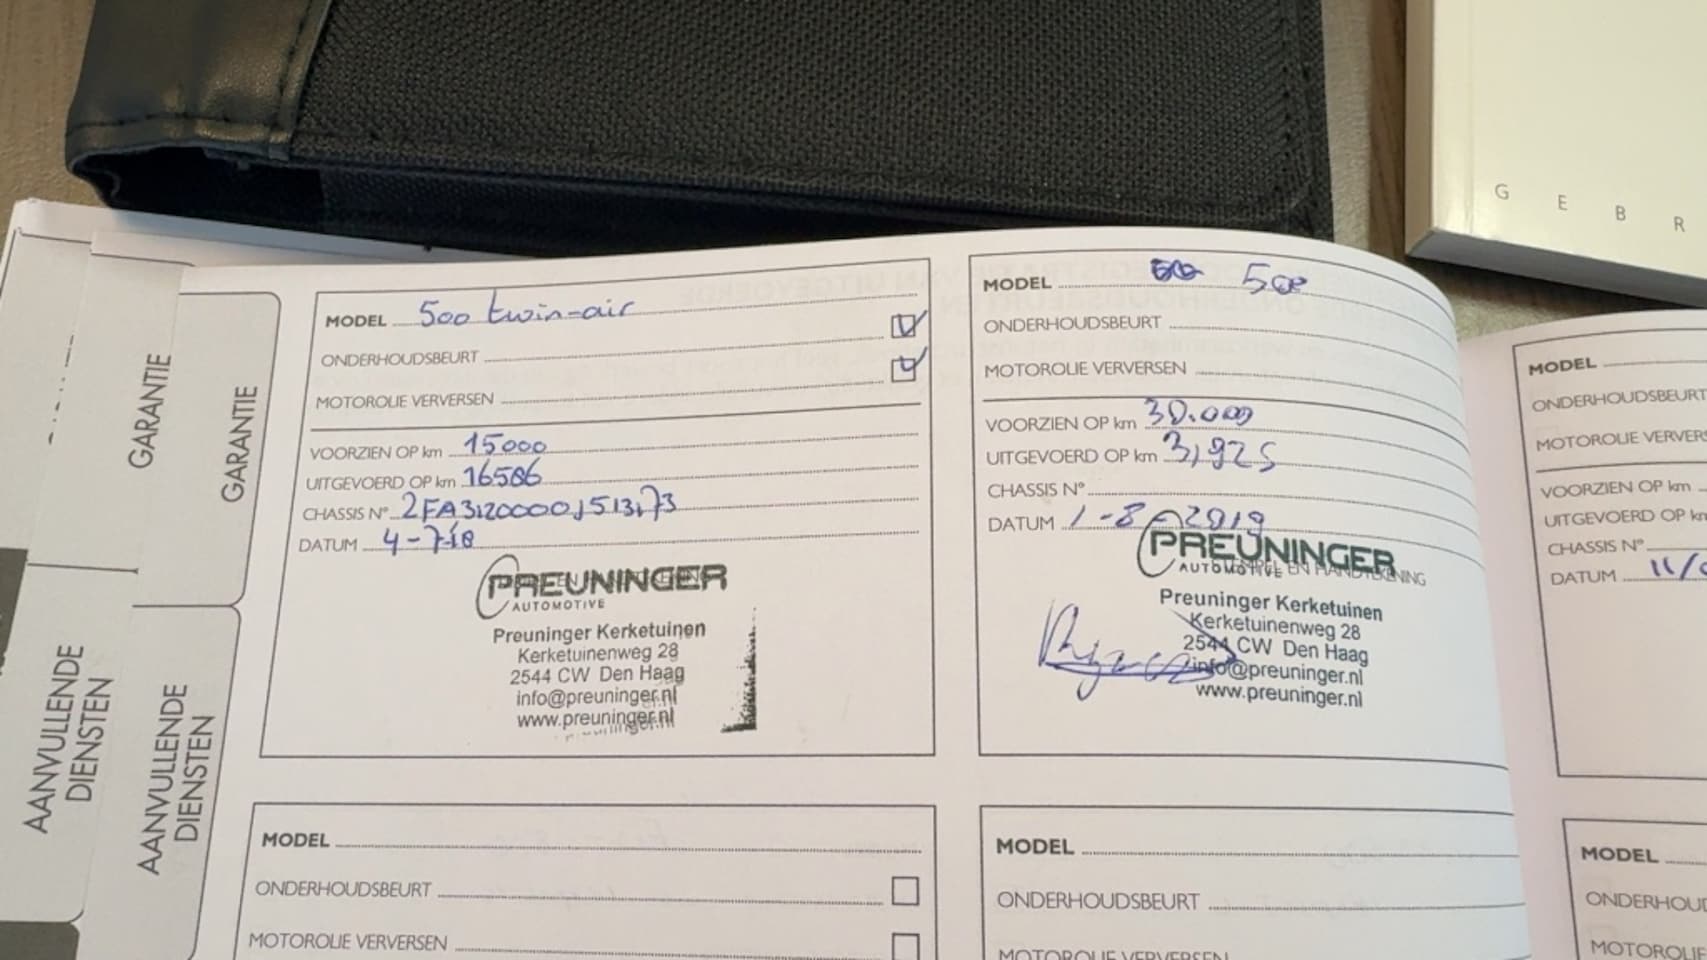 G E B R
GARANTIE
GARANTIE
AANVULLENDE
DIENSTEN
AANVULLENDE
DIENSTEN
MODEL 500 twin-air
ONDERHOUDSBEURT
MOTOROLIE VERVERSEN
VOORZIEN OP km 15000
UITGEVOERD OP km 16586
CHASSIS N°
DATUM 4-7-18
PREUNINGER
AUTOMOTIVE
Preuninger Kerketuinen
Kerketuinenweg 28
2544 CW Den Haag
info@preuninger.nl
www.preuninger.nl
MODEL 500
ONDERHOUDSBEURT
MOTOROLIE VERVERSEN
VOORZIEN OP km 30.000
UITGEVOERD OP km 31925
CHASSIS N°
DATUM 1-8-2019
STEMPEL EN HANDTEKENING
PREUNINGER
AUTOMOTIVE
Preuninger Kerketuinen
Kerketuinenweg 28
2544 CW Den Haag
info@preuninger.nl
www.preuninger.nl
MODEL
ONDERHOUDSBEURT
MOTOROLIE VERVERS
VOORZIEN OP km
UITGEVOERD OP km
CHASSIS N°
DATUM 11/0
MODEL
ONDERHOUDSBEURT
MOTOROLIE VERVERSEN
MODEL
ONDERHOUDSBEURT
MOTOROLIE VERVERSEN
MODEL
ONDERHOUD
MOTOROLIE